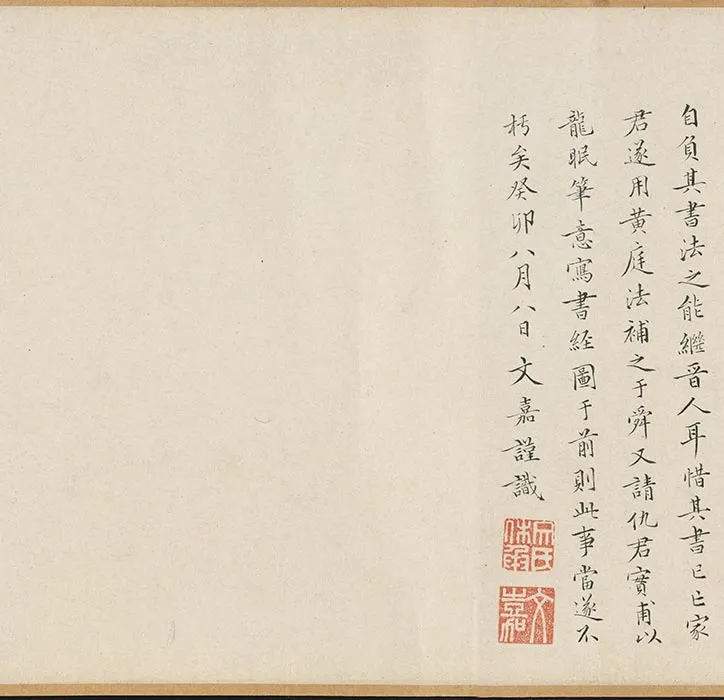 自負其書法之能繼晉人耳惜其書已亡家
君遂用黃庭法補之于舜又請仇君實甫以
龍眠筆意寫書經圖于前則此事當遂不
朽矣癸卯八月八日文嘉謹識
文嘉